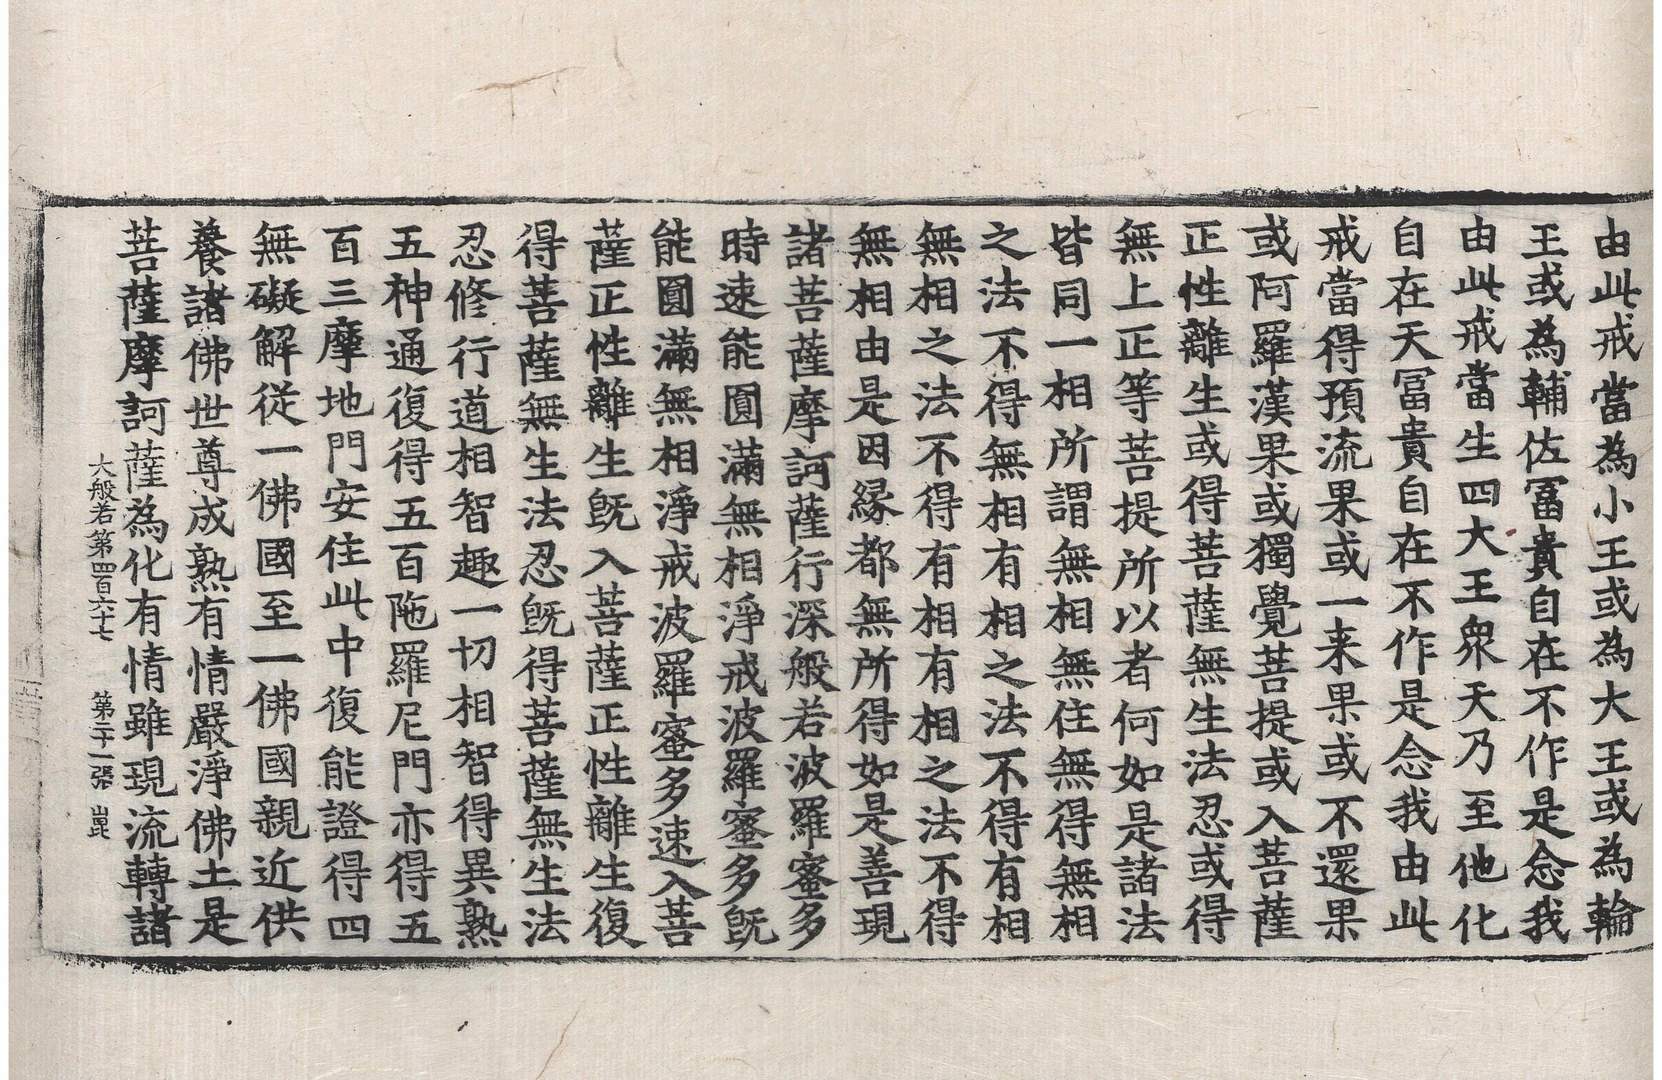 由此戒當為小王或為大王或為輪
王或為輔佐冨貴自在不作是念我
由此戒當生四大王衆天乃至他化
自在天冨貴自在不作是念我由此
戒當得預流果或一来果或不還果
或阿羅漢果或獨覺菩提或入菩薩
正性離生或得菩薩無生法忍或得
無上正等菩提所以者何如是諸法
皆同一相所謂無相無住無得無相
之法不得無相有相之法不得有相
無相之法不得有相有相之法不得
無相由是因縁都無所得如是善現
諸菩薩摩訶薩行深般若波羅蜜多
時速能圓滿無相淨戒波羅蜜多旣
能圓滿無相淨戒波羅蜜多速入菩
薩正性離生旣入菩薩正性離生復
得菩薩無生法忍旣得菩薩無生法
忍修行道相智趣一切相智得異熟
五神通復得五百陁羅尼門亦得五
百三摩地門安住此中復能證得四
無礙解從一佛國至一佛國親近供
養諸佛世尊成熟有情嚴淨佛土是
菩薩摩訶薩為化有情雖現流轉諸
大般若第四百六十七 第二十一張 崑